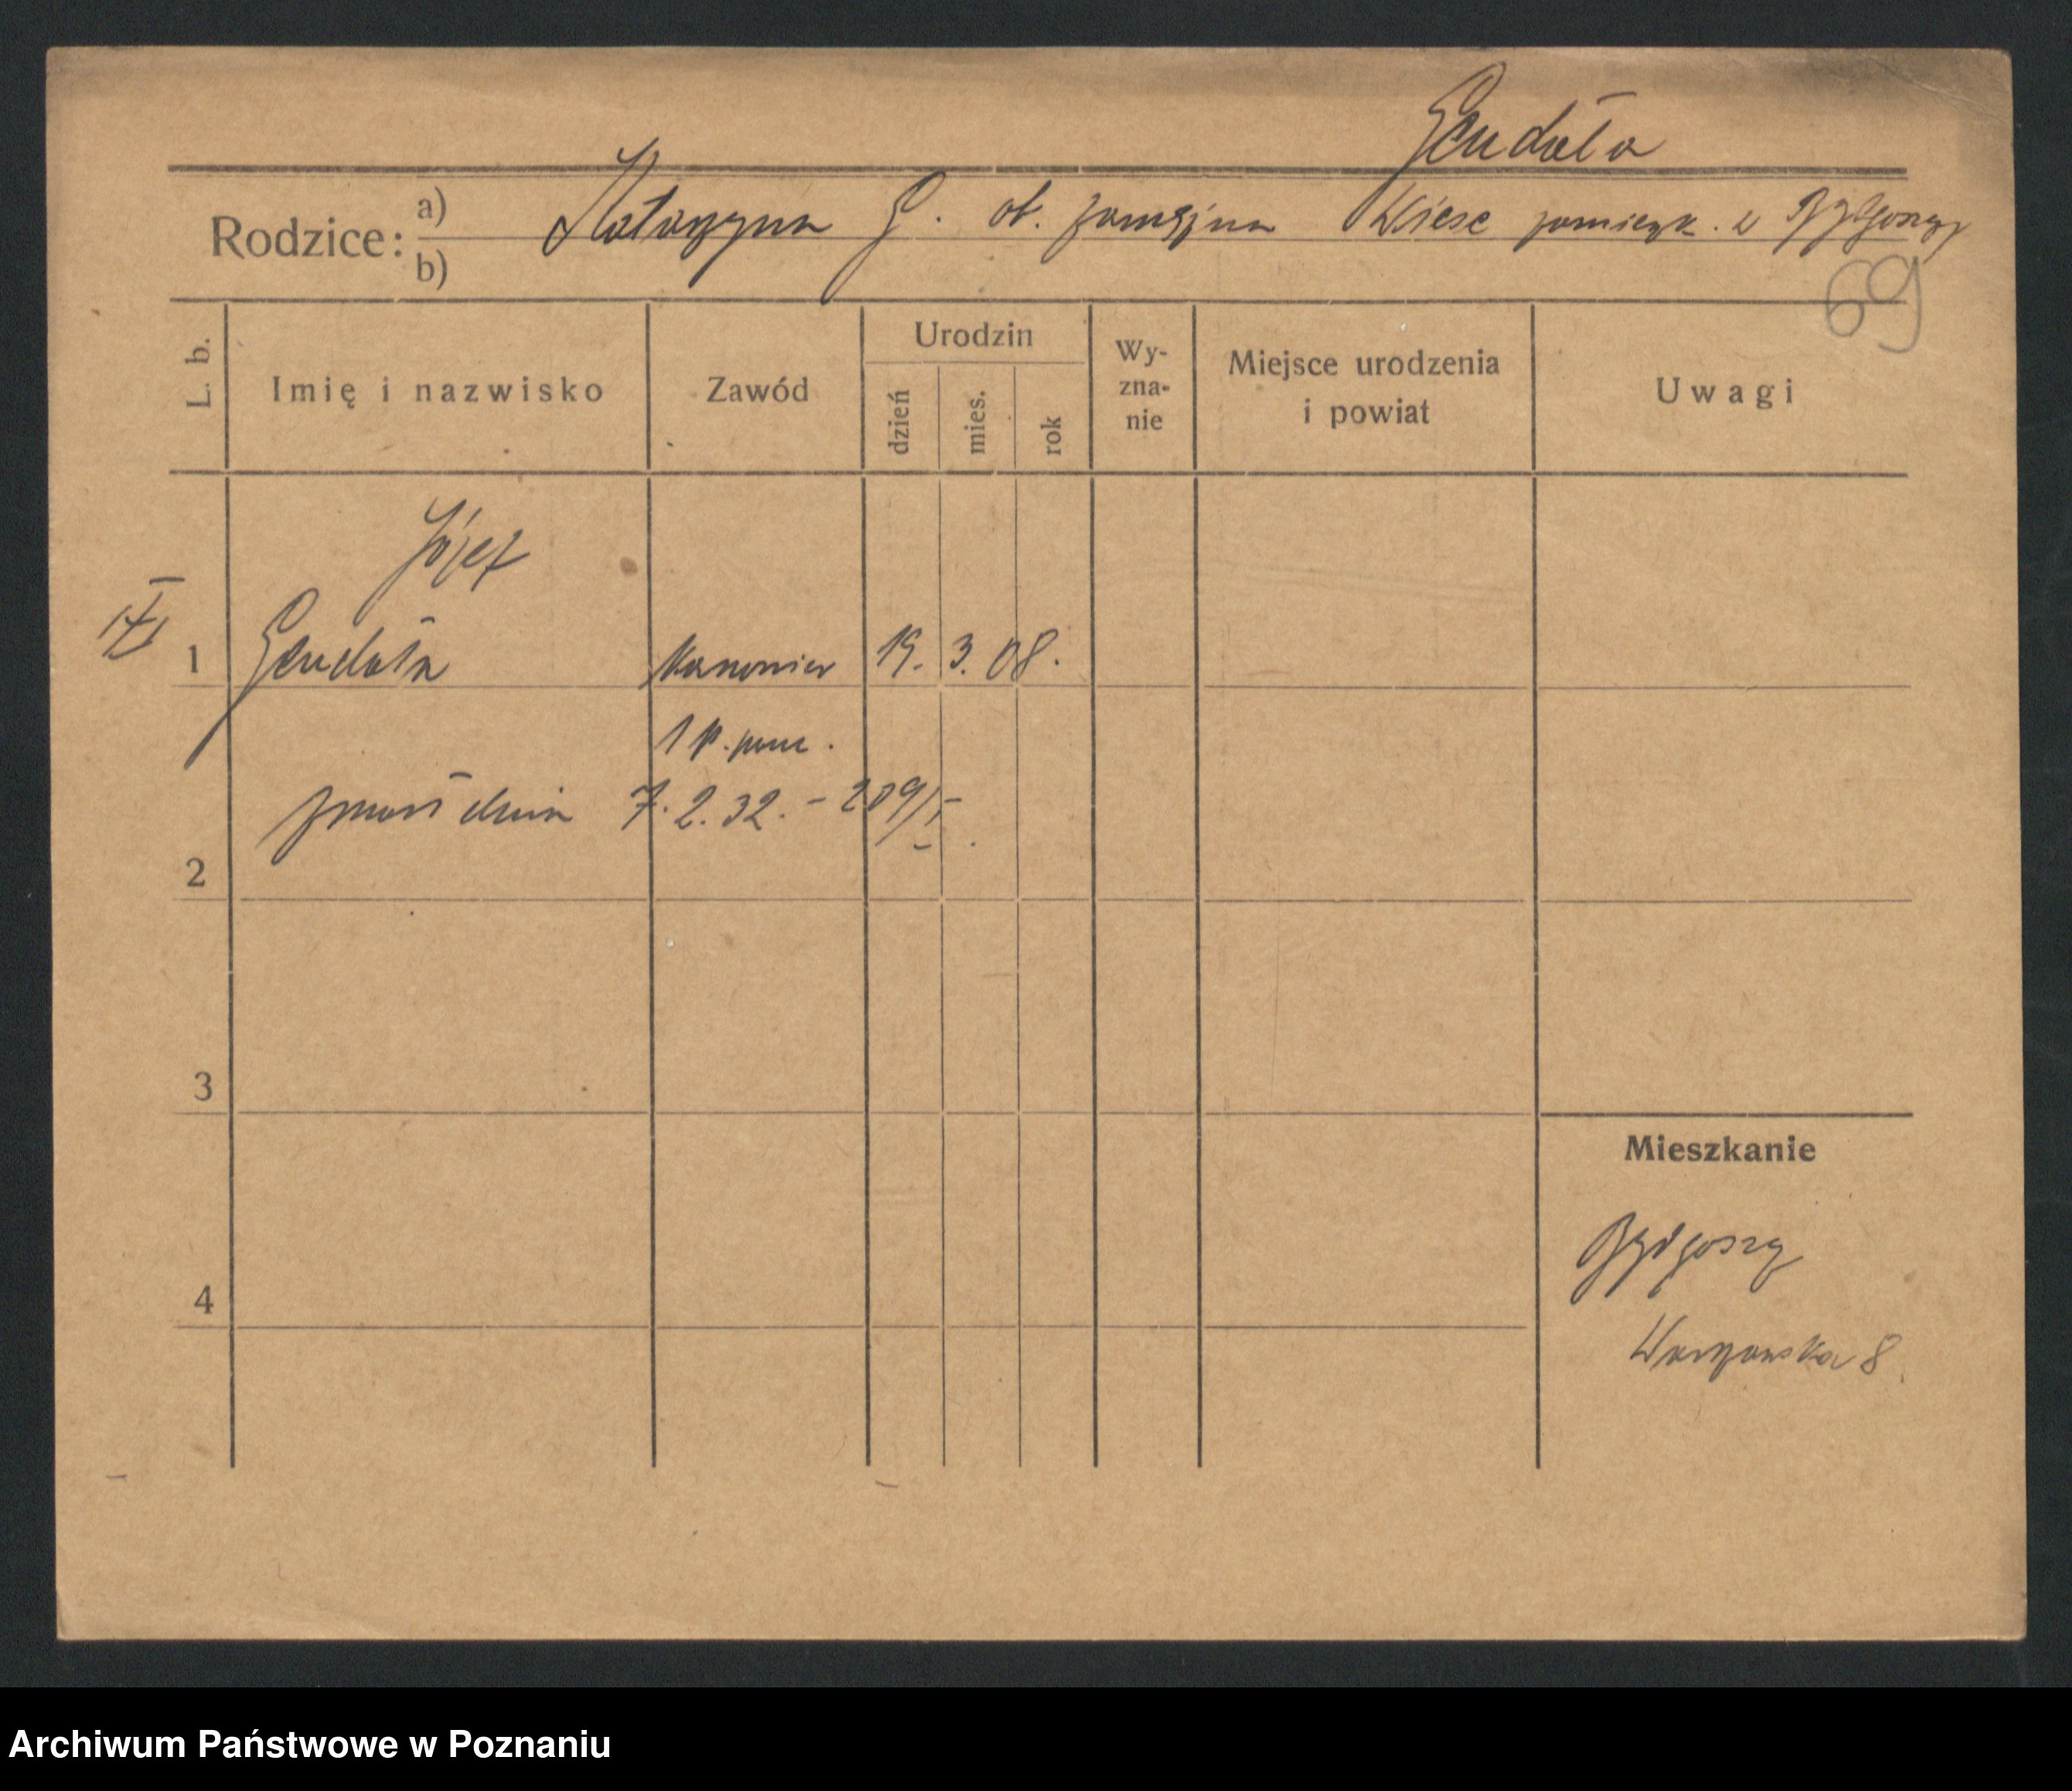 Gendała
Rodzice: a) b) Katarzyna G. ob. zamężna Wiese zamieszk. w Bydgoszczy
69
L. b.
Imię i nazwisko
Zawód
Urodzin
dzień
mies.
rok
Wy-
zna-
nie
Miejsce urodzenia
i powiat
Uwagi
Józef
1 Gendała kanonier 19. 3. 08.
1 p.
zmarł dnia 7. 2. 32. – 209/
2
3
4
Mieszkanie
Bydgoszcz
Warszawska 8
Archiwum Państwowe w Poznaniu